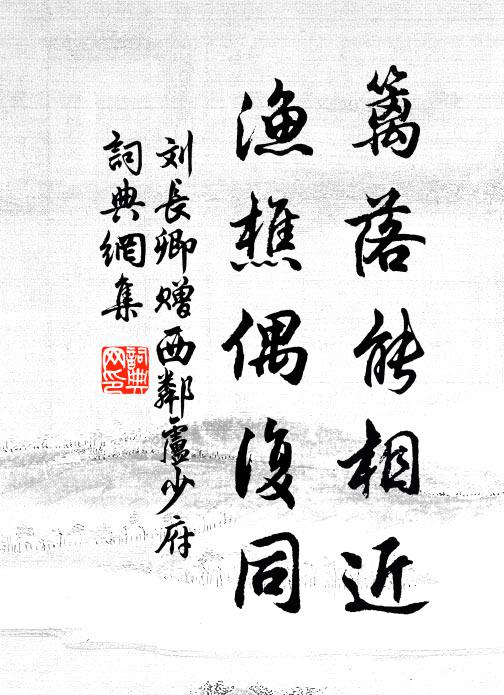 籬落能相近
漁樵偶復同
刘長卿赠西鄰盧少府
詞典網集
詞典网印